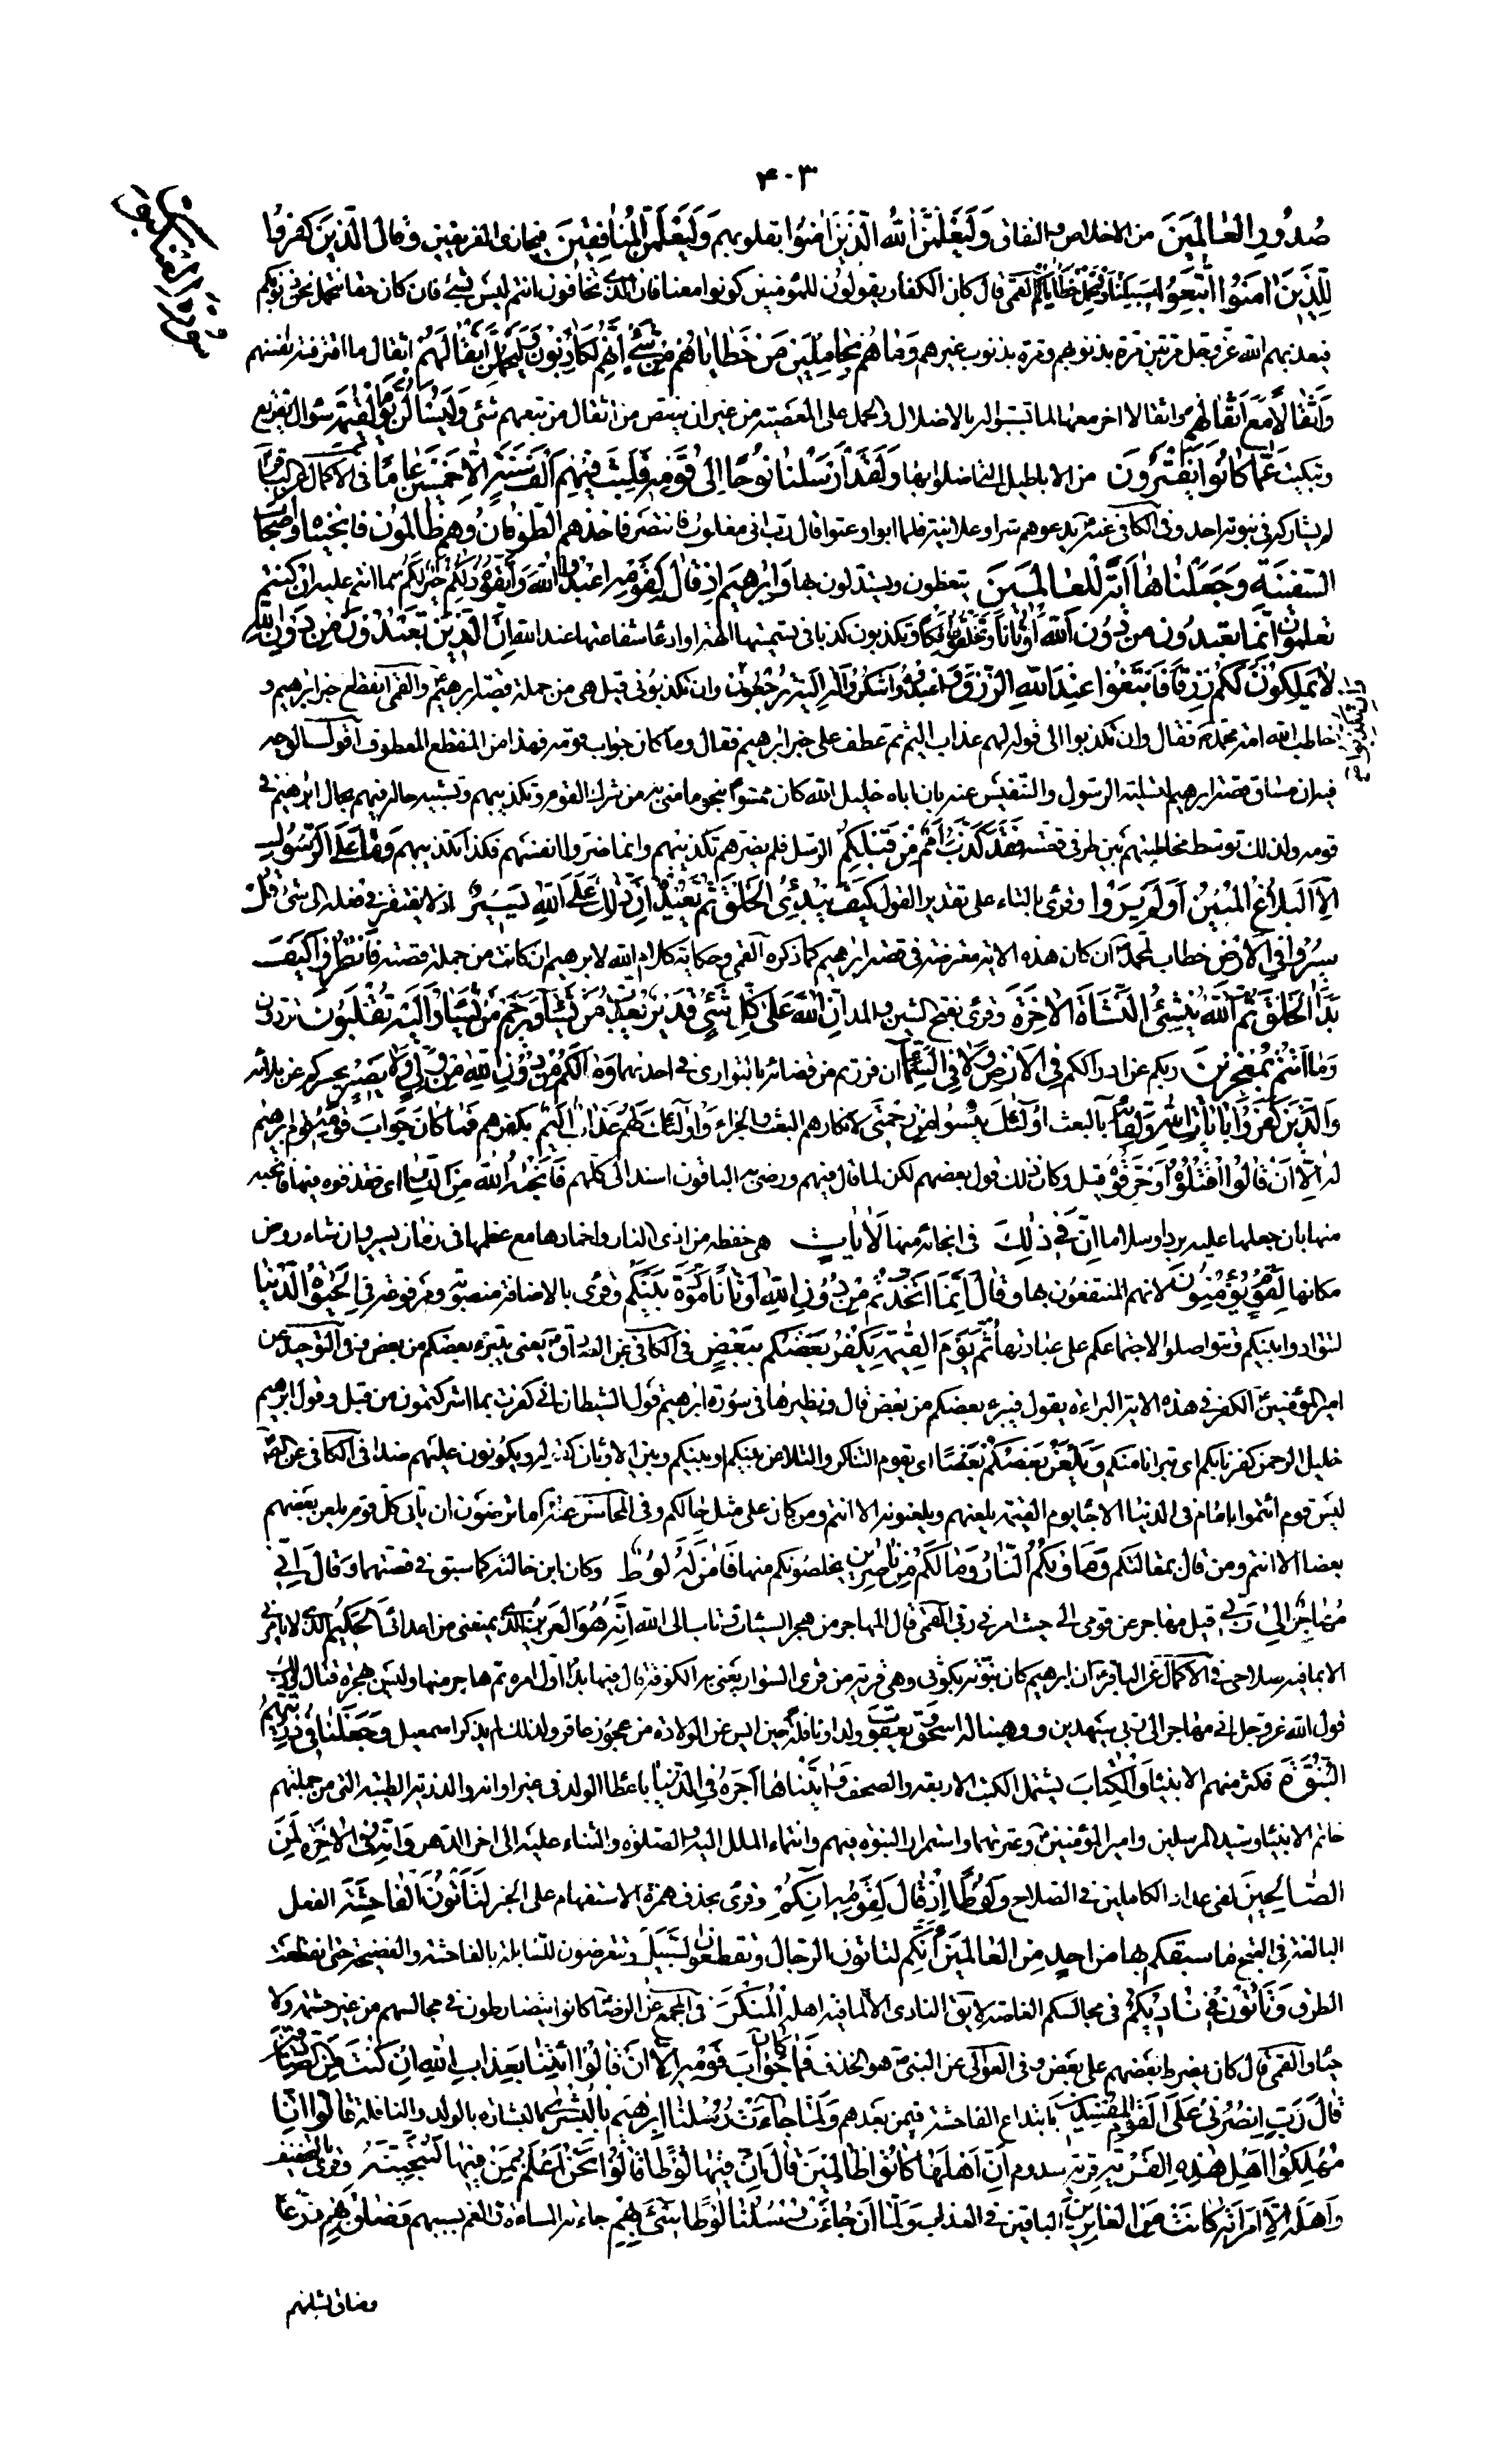 ۴۰۳
سورة العنكبوت
صُدُورِ الْعَالَمِينَ من الاخلاص والنفاق وَلَيَعْلَمَنَّ اللهُ الَّذِينَ اٰمَنُوا بقلوبهم وَلَيَعْلَمَنَّ الْمُنٰافِقِينَ فيجازي الفريقين وَقٰالَ الَّذِينَ كَفَرُوا
لِلَّذِينَ اٰمَنُوا اتَّبِعُوا سَبِيلَنٰا وَلْنَحْمِلْ خَطٰايٰاكُمْ القمي قال كان الكفار يقولون للمؤمنين كونوا معنا فان الذي تخافون انتم ليس بشيء فان كان حقا نتحمل نحن ذنوبكم
فيعذبهم الله عز وجل مرتين مرة بذنوبهم ومرة بذنوب غيرهم وَمٰا هُمْ بِحٰامِلِينَ مِنْ خَطٰايٰاهُمْ مِنْ شَيْءٍ إِنَّهُمْ لَكٰاذِبُونَ وَلَيَحْمِلُنَّ أَثْقٰالَهُمْ اثقال ما اقترفته انفسهم
وَأَثْقٰالاً مَعَ أَثْقٰالِهِمْ واثقالا اخر معها لما تسببوا له بالاضلال والحمل على المعصية من غير ان ينقص من اثقال من تبعهم شئ وَلَيُسْأَلُنَّ يَوْمَ الْقِيٰمَةِ سؤال تقريع
وتبكيت عَمّٰا كٰانُوا يَفْتَرُونَ من الاباطيل التي اضلوا بها وَلَقَدْ أَرْسَلْنٰا نُوحًا إِلىٰ قَوْمِهِ فَلَبِثَ فِيهِمْ أَلْفَ سَنَةٍ إِلّٰا خَمْسِينَ عٰامًا في الاكمال عن الباقر
لم يشاركه في نبوته احد وفي الكافي عنه يدعوهم سرا وعلانية فلما ابوا وعتوا قال رب اني مغلوب فانتصر فاخذهم الطوفان وهم ظالمون فانجيناه واصحاب
السَّفِينَةِ وَجَعَلْنٰاهٰا اٰيَةً لِلْعٰالَمِينَ يتعظون ويستدلون بها وَإِبْرٰهِيمَ إِذْ قٰالَ لِقَوْمِهِ اعْبُدُوا اللهَ وَاتَّقُوهُ ذٰلِكُمْ خَيْرٌ لَكُمْ مما انتم عليه إِنْ كُنْتُمْ
تَعْلَمُونَ إِنَّمٰا تَعْبُدُونَ مِنْ دُونِ اللهِ أَوْثٰانًا وَتَخْلُقُونَ إِفْكًا وتكذبون كذبا في تسميتها الهة وادعاء شفاعتها عند الله إِنَّ الَّذِينَ تَعْبُدُونَ مِنْ دُونِ اللهِ
لٰا يَمْلِكُونَ لَكُمْ رِزْقًا فَابْتَغُوا عِنْدَ اللهِ الرِّزْقَ وَاعْبُدُوهُ وَاشْكُرُوا لَهُ إِلَيْهِ تُرْجَعُونَ وان تكذبوني قيل هي من جملة قصة ابرهيم والقمي انقطع خبر ابرهيم و
وان تكذبوا
خاطب الله امة محمد فقال وان تكذبوا الى قوله لهم عذاب اليم ثم عطف على خبر ابرهيم فقال وما كان جواب قومه فهذا من المنقطع المعطوف اقول لعل الوجه
فيه ان مساق قصة ابرهيم لتسلية الرسول والتنفيس عنه بان اباه خليل الله كان ممنوا بنحو ما مني به من شرك القوم وتكذيبهم وتشبيه حاله فيهم بحال ابرهيم في
قومه ولذلك توسط مخاطبتهم بين طرفي قصته فَقَدْ كَذَّبَ أُمَمٌ مِنْ قَبْلِكُمْ الرسل فلم يضرهم تكذيبهم وانما ضروا انفسهم فكذا تكذيبهم وَمٰا عَلَى الرَّسُولِ
إِلَّا الْبَلٰاغُ الْمُبِينُ أَوَلَمْ يَرَوْا وقرئ بالتاء على تقدير القول كَيْفَ يُبْدِئُ اللهُ الْخَلْقَ ثُمَّ يُعِيدُهُ إِنَّ ذٰلِكَ عَلَى اللهِ يَسِيرٌ اذ لا يفتقر في فعله الى شئ قُلْ
سِيرُوا فِي الْأَرْضِ خطاب لمحمد ان كان هذه الاية معترضة في قصة ابرهيم كما ذكره القمي وحكاية كلام الله لابرهيم ان كانت من جملة قصته فَانْظُرُوا كَيْفَ
بَدَأَ الْخَلْقَ ثُمَّ اللهُ يُنْشِئُ النَّشْأَةَ الْاٰخِرَةَ وقرئ بفتح الشين والمد إِنَّ اللهَ عَلىٰ كُلِّ شَيْءٍ قَدِيرٌ يُعَذِّبُ مَنْ يَشٰاءُ وَيَرْحَمُ مَنْ يَشٰاءُ وَإِلَيْهِ تُقْلَبُونَ تردون
وَمٰا أَنْتُمْ بِمُعْجِزِينَ ربكم عن ادراككم فِي الْأَرْضِ وَلٰا فِي السَّمٰاءِ ان فررتم من قضائه بالتواري في احديهما وَمٰا لَكُمْ مِنْ دُونِ اللهِ مِنْ وَلِيٍّ وَلٰا نَصِيرٍ يحرسكم عن بلائه
وَالَّذِينَ كَفَرُوا بِاٰيٰاتِ اللهِ وَلِقٰائِهِ بالبعث أُولٰئِكَ يَئِسُوا مِنْ رَحْمَتِي لانكارهم البعث والجزاء وَأُولٰئِكَ لَهُمْ عَذٰابٌ أَلِيمٌ بكفرهم فَمٰا كٰانَ جَوٰابَ قَوْمِهِ قوم ابرهيم
له إِلّٰا أَنْ قٰالُوا اقْتُلُوهُ أَوْ حَرِّقُوهُ قيل وكان ذلك قول بعضهم لكن لما قال فيهم ورضي به الباقون اسند الى كلهم فَأَنْجٰاهُ اللهُ مِنَ النّٰارِ اي فقذفوه فيها فانجيه
منها بان جعلها عليه بردا وسلاما إِنَّ فِي ذٰلِكَ في انجائه منها لَاٰيٰاتٍ هي حفظه من اذى النار واخمادها مع عظمها في زمان يسير وانشاء روض
مكانها لِقَوْمٍ يُؤْمِنُونَ لانهم المنتفعون بها وَقٰالَ إِنَّمَا اتَّخَذْتُمْ مِنْ دُونِ اللهِ أَوْثٰانًا مَوَدَّةَ بَيْنِكُمْ وقرئ بالاضافة منصوبة ومرفوعة فِي الْحَيٰوةِ الدُّنْيٰا
لتوادوا بينكم وتتواصلوا لاجتماعكم على عبادتها ثُمَّ يَوْمَ الْقِيٰمَةِ يَكْفُرُ بَعْضُكُمْ بِبَعْضٍ في الكافي عن الصادق يعني يتبرء بعضكم من بعض وفي التوحيد عن
امير المؤمنين الكفر في هذه الاية البراءة يقول فيبرء بعضكم من بعض قال ونظيرها في سورة ابرهيم قول الشيطان اني كفرت بما اشركتمون من قبل وقول ابرهيم
خليل الرحمن كفرنا بكم اي تبرانا منكم وَيَلْعَنُ بَعْضُكُمْ بَعْضًا اي يقوم التناكر والتلاعن بينكم او بينكم وبين الاوثان كقوله ويكونون عليهم ضدا في الكافي عن الصادق
ليس قوم ائتموا بامام في الدنيا الا جاء يوم القيمة يلعنهم ويلعنونه الا انتم ومن كان على مثل حالكم وفي المحاسن عنه اما ترضون ان ياتي كل قوم يلعن بعضهم
بعضا الا انتم ومن قال بمقالتكم وَمَأْوٰاكُمُ النّٰارُ وَمٰا لَكُمْ مِنْ نٰاصِرِينَ يخلصونكم منها فَاٰمَنَ لَهُ لُوطٌ وكان ابن خالته كما سبق في قصتهما وَقٰالَ إِنِّي
مُهٰاجِرٌ إِلىٰ رَبِّي قيل مهاجر عن قومي الى حيث امرني ربي القمي قال المهاجر من هجر السيئات وتاب الى الله إِنَّهُ هُوَ الْعَزِيزُ الذي يمنعني من اعدائي الْحَكِيمُ الذي لا يامرني
الا بما فيه صلاحي في الاكمال عن الباقر ان ابرهيم كان نبوته بكوثى وهي قرية من قرى السواد يعني به الكوفة قال فيها بدا اول امره ثم هاجر منها وليس بهجرة قتال وذلك
قول الله عز وجل اني مهاجر الى ربي سيهدين وَوَهَبْنٰا لَهُ إِسْحٰقَ وَيَعْقُوبَ ولدا ونافلة حين ايس عن الولادة من عجوز عاقر ولذلك لم يذكر اسمعيل وَجَعَلْنٰا فِي ذُرِّيَّتِهِ
النُّبُوَّةَ فكثر منهم الانبياء وَالْكِتٰابَ يشمل الكتب الاربعة والصحف وَاٰتَيْنٰاهُ أَجْرَهُ فِي الدُّنْيٰا باعطاء الولد في غير اوانه والذرية الطيبة التي من جملتهم
خاتم الانبياء وسيد المرسلين وامير المؤمنين وعترتهما واستمرار النبوة فيهم وانتماء الملل اليه والصلوة والثناء عليه الى اخر الدهر وَإِنَّهُ فِي الْاٰخِرَةِ لَمِنَ
الصّٰالِحِينَ لفي عداد الكاملين في الصلاح وَلُوطًا إِذْ قٰالَ لِقَوْمِهِ إِنَّكُمْ وقرئ بحذف همزة الاستفهام على الخبر لَتَأْتُونَ الْفٰاحِشَةَ الفعل
البالغة في القبح مٰا سَبَقَكُمْ بِهٰا مِنْ أَحَدٍ مِنَ الْعٰالَمِينَ أَئِنَّكُمْ لَتَأْتُونَ الرِّجٰالَ وَتَقْطَعُونَ السَّبِيلَ وتتعرضون للسابلة بالفاحشة والفضيحة حتى انقطعت
الطرق وَتَأْتُونَ فِي نٰادِيكُمُ في مجالسكم الغاصة لا يقال النادي الا لما فيه اهله الْمُنْكَرَ في المجمع عن الرضا كانوا يتضارطون في مجالسهم من غير حشمة ولا
حياء والقمي قال كان يضرط بعضهم على بعض وفي العوالي عن النبي هو الخذف فَمٰا كٰانَ جَوٰابَ قَوْمِهِ إِلّٰا أَنْ قٰالُوا ائْتِنٰا بِعَذٰابِ اللهِ إِنْ كُنْتَ مِنَ الصّٰادِقِينَ
قٰالَ رَبِّ انْصُرْنِي عَلَى الْقَوْمِ الْمُفْسِدِينَ بابتداع الفاحشة فيمن بعدهم وَلَمّٰا جٰاءَتْ رُسُلُنٰا إِبْرٰهِيمَ بِالْبُشْرىٰ بالبشارة بالولد والنافلة قٰالُوا إِنّٰا
مُهْلِكُوا أَهْلِ هٰذِهِ الْقَرْيَةِ قرية سدوم إِنَّ أَهْلَهٰا كٰانُوا ظٰالِمِينَ قٰالَ إِنَّ فِيهٰا لُوطًا قٰالُوا نَحْنُ أَعْلَمُ بِمَنْ فِيهٰا لَنُنَجِّيَنَّهُ وقرئ بالتخفيف
وَأَهْلَهُ إِلَّا امْرَأَتَهُ كٰانَتْ مِنَ الْغٰابِرِينَ الباقين في العذاب وَلَمّٰا أَنْ جٰاءَتْ رُسُلُنٰا لُوطًا سِيءَ بِهِمْ جاءته المساءة والغم بسببهم وَضٰاقَ بِهِمْ ذَرْعًا
وضاق بشانهم